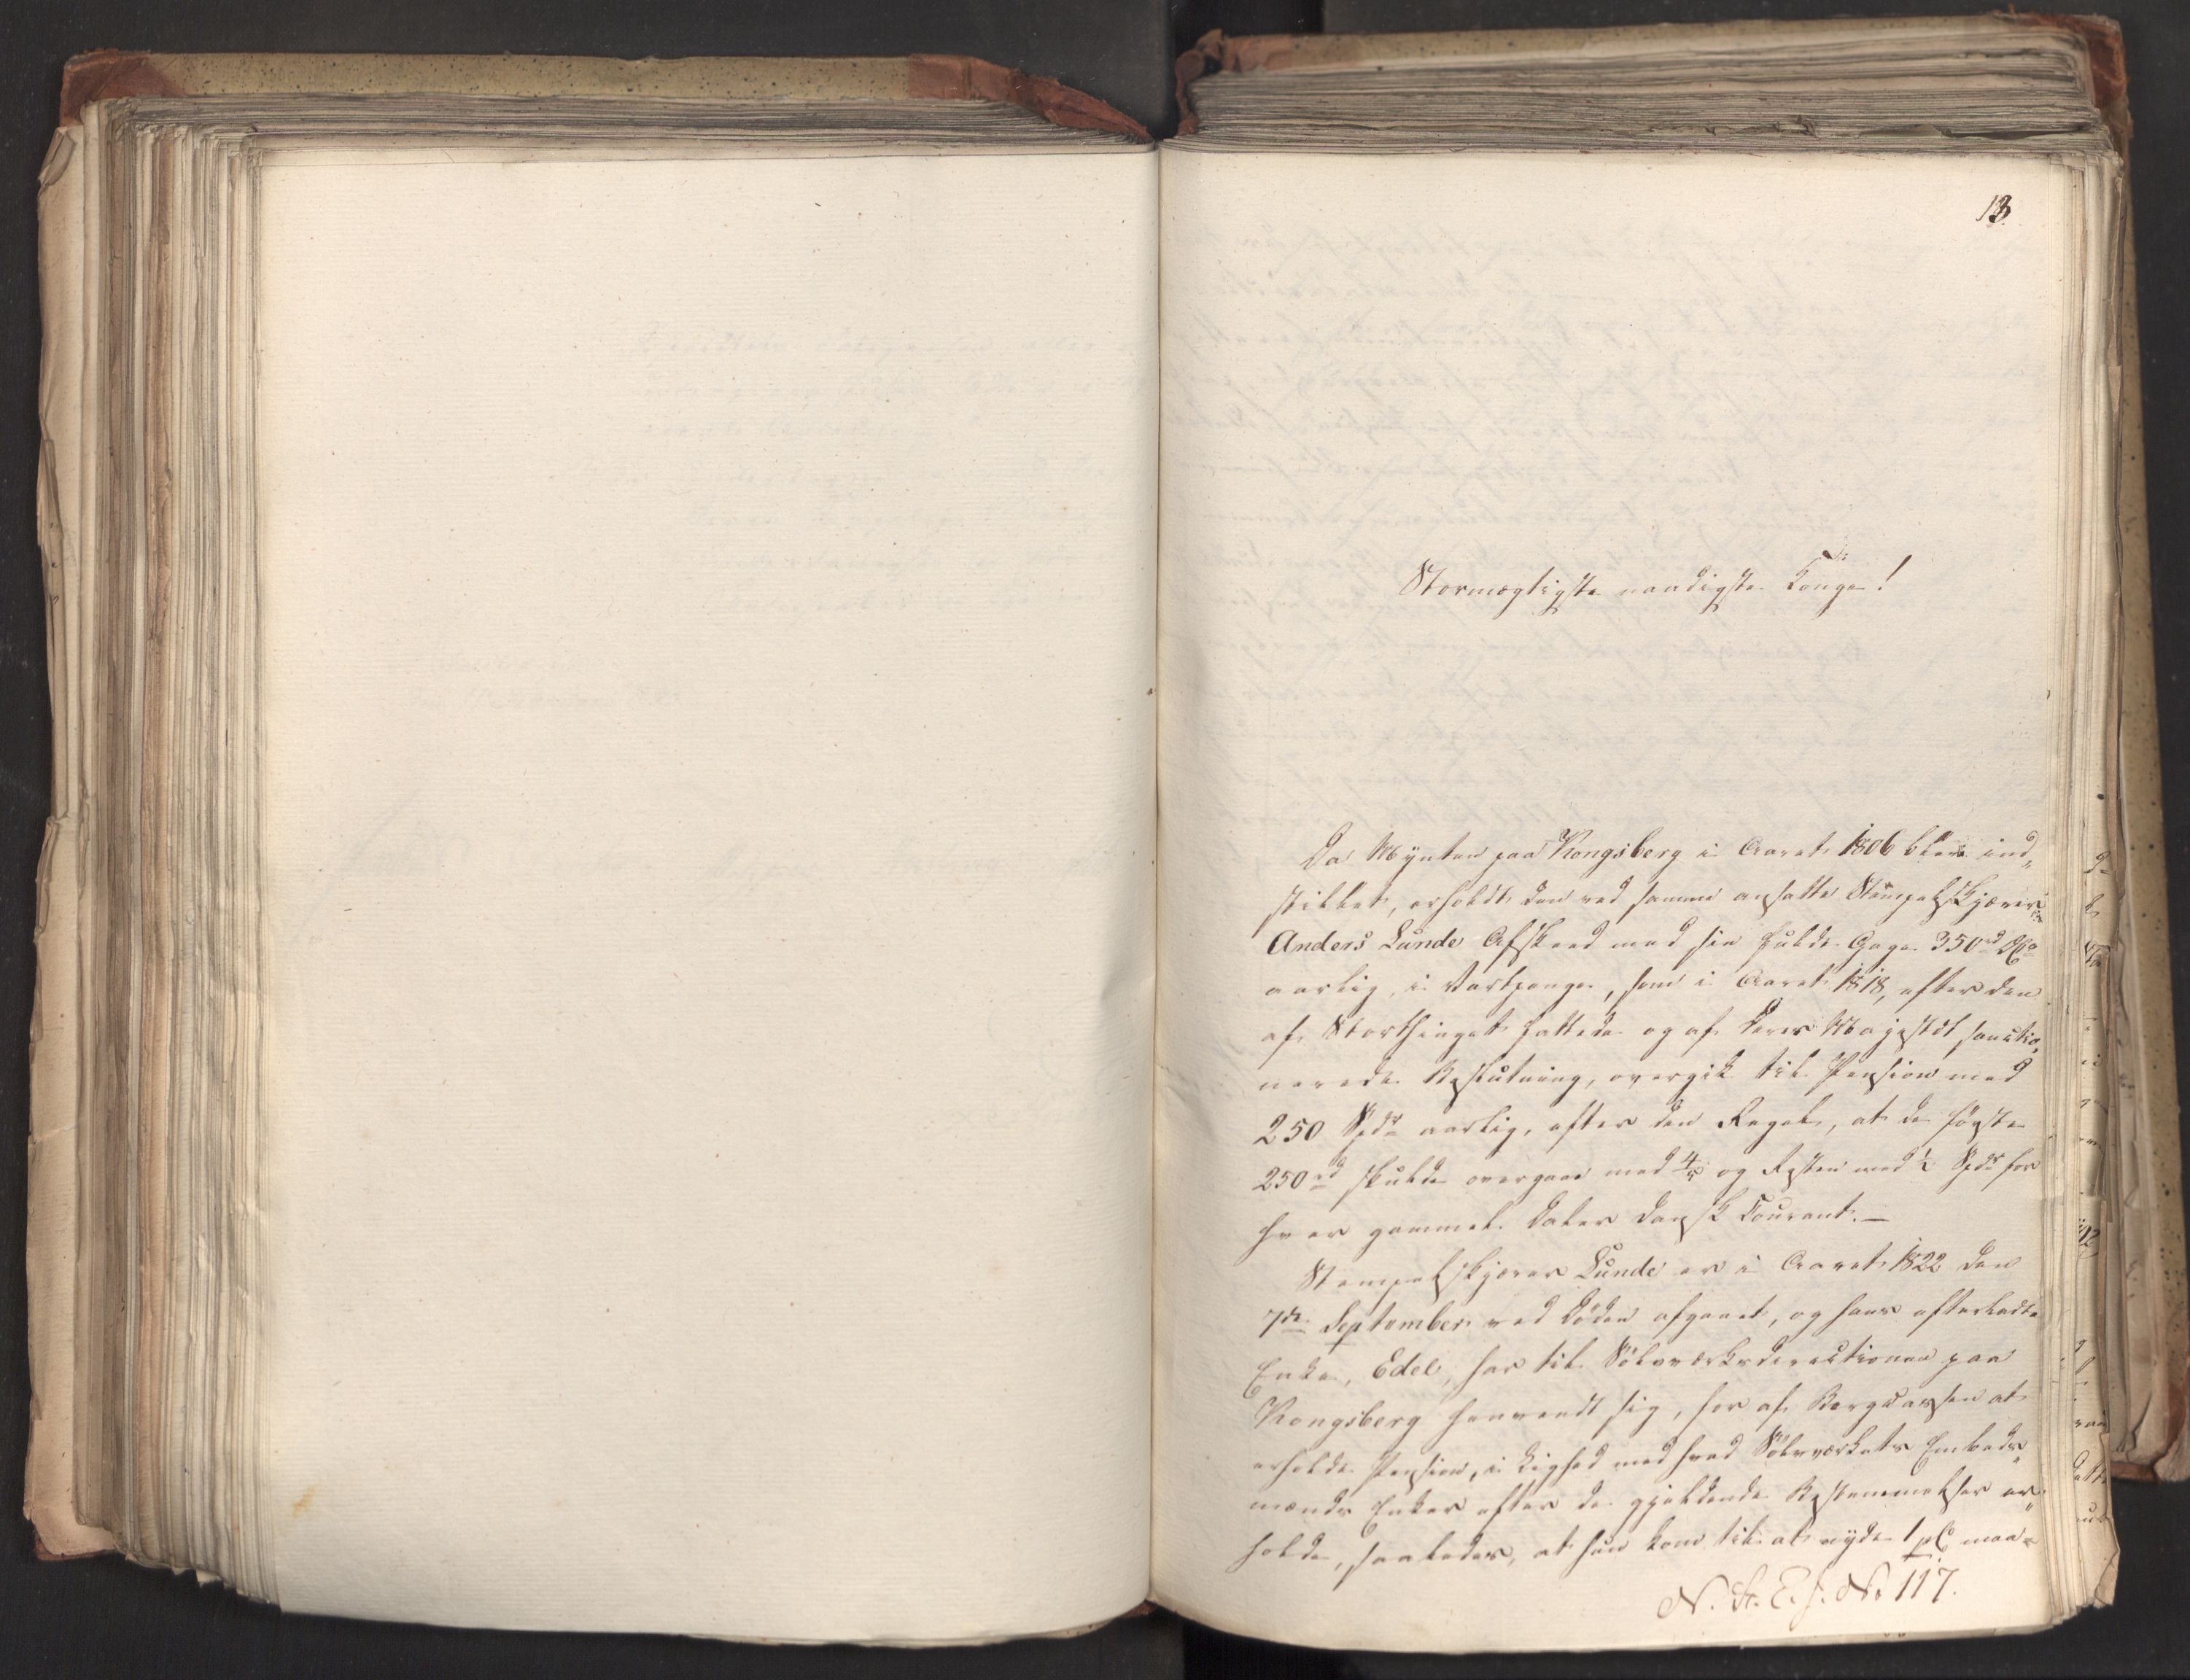 13.
Stormægtigste naadigste Konge!
Da Mynten paa Kongsberg i Aaret 1806 blev ind„
stillet, erholdt den ved samme ansatte Stempelskjærer
Anders Lunde Afsked med sin fulde Gage 350 rd
aarlig, i Vartpenge, som i Aaret 1818, efter den
af Storthinget fattede og af Deres Majestæt sanctio„
nerede Beslutning, overgik til Pension med
250 Spdr aarlig, efter den Regel, at de første
250 rd skulde overgaae med 4/5 og Resten med ½ Spdr for
hver gammel Daler dansk Courant.—
Stempelskjærer Lunde er i Aaret 1822 den
7de September ved Døden afgaaet, og hans efterladte
Enke, Edel, har til Sølvværksdirectionen paa
Kongsberg henvendt sig, for af Bergcassen at
erholde Pension, i Lighed med hvad Sølvværkets Embeds„
mænds Enker efter de gjeldende Bestemmelser er„
holde, saaledes, at hun kom til at nyde 1 pC maa=
N. St. E. J. No 117.